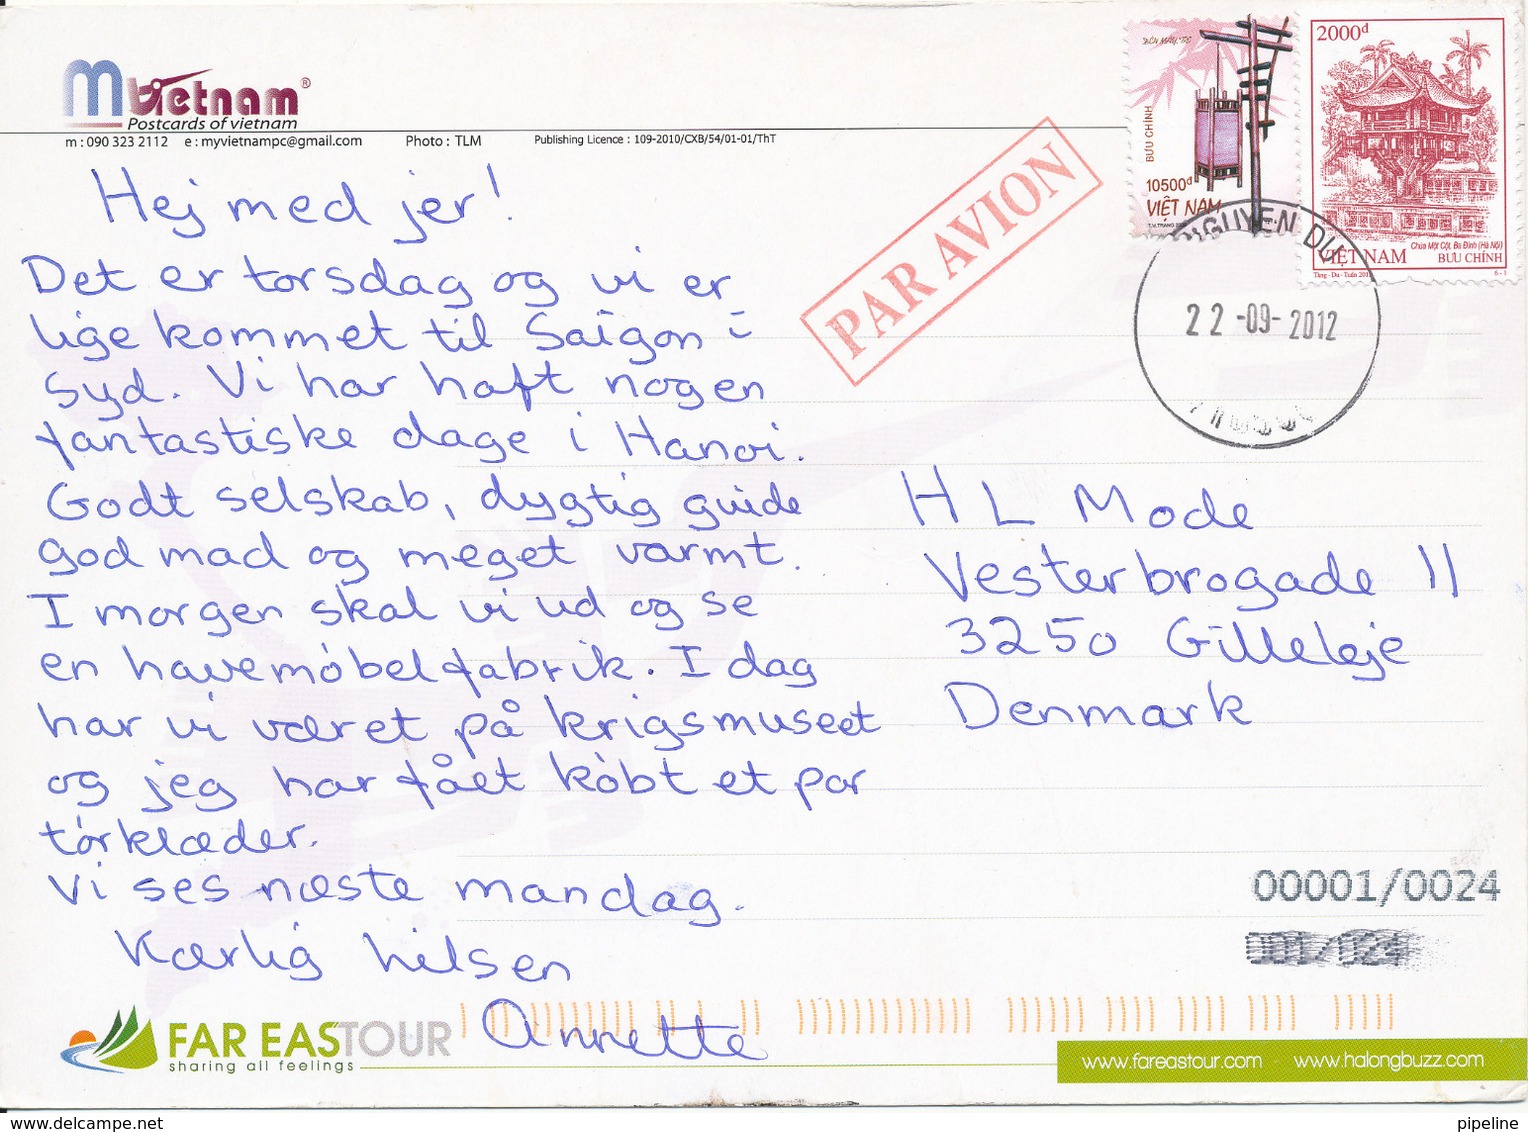 My Vietnam®
Postcards of vietnam
m : 090 323 2112 e : myvietnampc@gmail.com Photo : TLM Publishing Licence : 109-2010/CXB/54/01-01/ThT
Hej med jer!
Det er torsdag og vi er
lige kommet til Saigon i
syd. Vi har haft nogen
fantastiske dage i Hanoi.
Godt selskab, dygtig guide
god mad og meget varmt.
I morgen skal vi ud og se
en havemöbelfabrik. I dag
har vi været på krigsmuseet
og jeg har fået köbt et par
törklæder.
Vi ses næste mandag.
Kærlig hilsen
Annette
PAR AVION
BƯU CHÍNH
10500đ
VIỆT NAM
2000đ
Chùa Một Cột, Ba Đình (Hà Nội)
VIỆT NAM BƯU CHÍNH
6-1
NGUYEN DU
22-09-2012
HL Mode
Vesterbrogade 11
3250 Gilleleje
Denmark
00001/0024
001/024
FAR EASTOUR
sharing all feelings
www.fareastour.com - www.halongbuzz.com
www.delcampe.net
pipeline